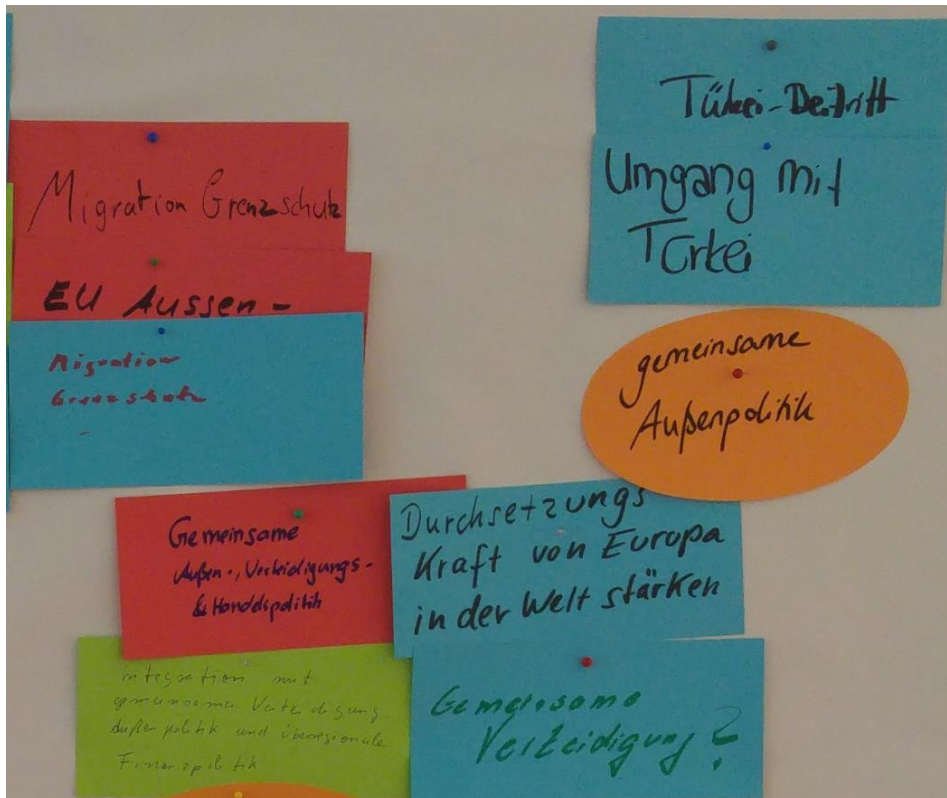 Migration Grenzschutz
EU Aussen-
Migration
Grenzschutz
-
Türkei-Beitritt
Umgang mit
Türkei
gemeinsame
Außenpolitik
Gemeinsame
Außen-, Verteidigungs-
& Handelspolitik
Durchsetzungs
Kraft von Europa
in der Welt stärken
Integration mit
gemeinsamer Verteidigung
Außenpolitik und überregionale
Finanzpolitik
Gemeinsame
Verteidigung?